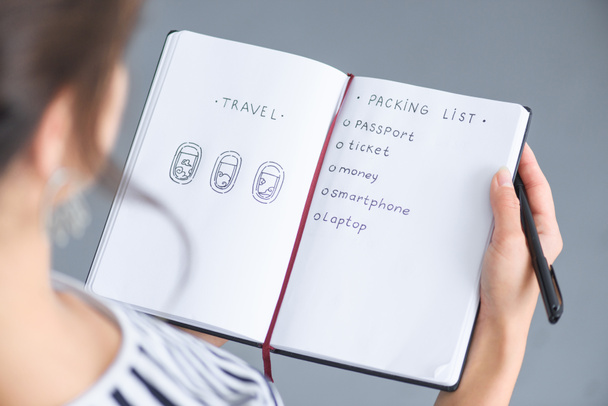 · TRAVEL ·
· PACKING LIST ·
o PASSPORT
o ticket
o money
o smartphone
o laptop